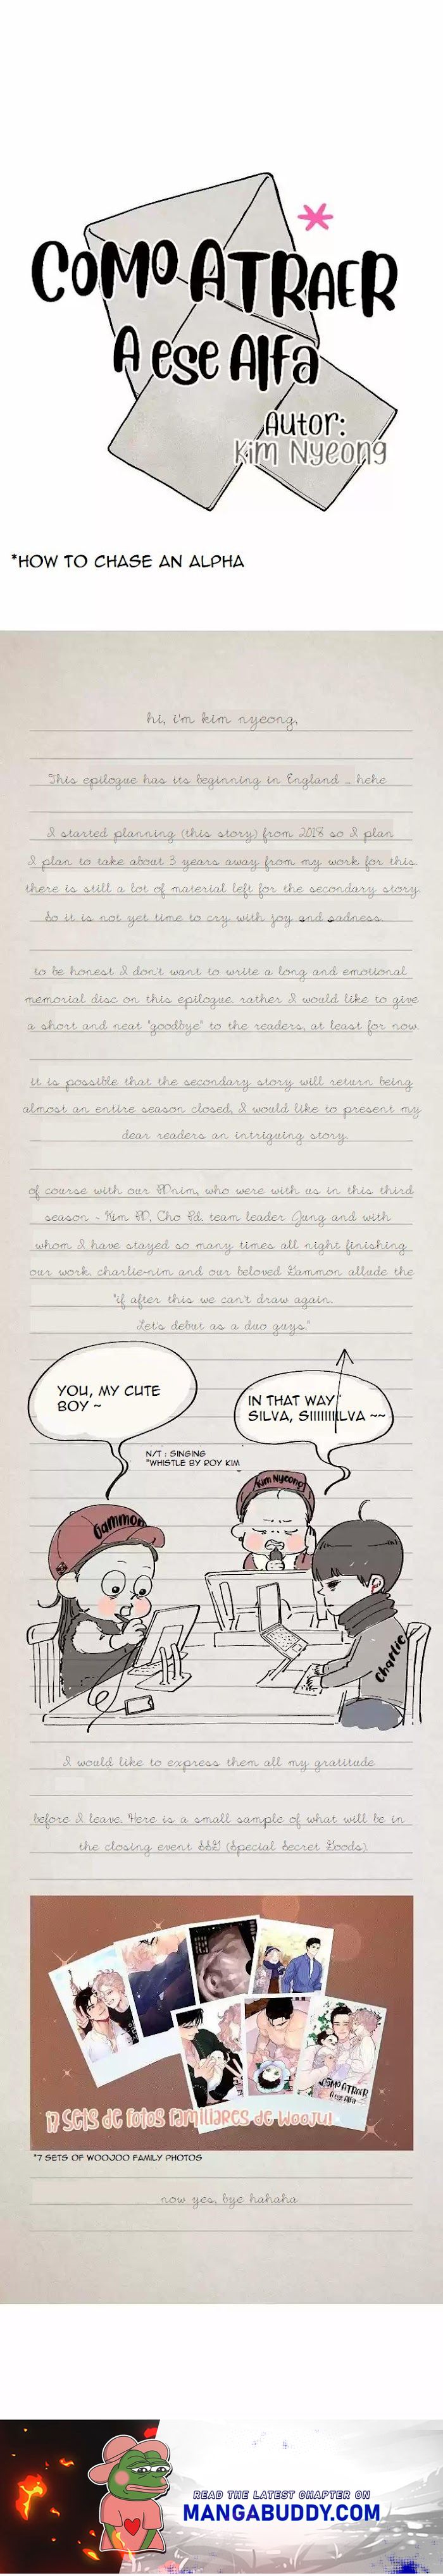 COMO ATRAER
A ese Alfa
*
Autor:
Kim Nyeong
*HOW TO CHASE AN ALPHA
hi, i'm kim nyeong,
This epilogue has its beginning in England ... hehe
I started planning (this story) from 2018 so I plan
I plan to take about 3 years away from my work for this.
there is still a lot of material left for the secondary story.
So it is not yet time to cry with joy and sadness.
to be honest I don't want to write a long and emotional
memorial disc on this epilogue. rather I would like to give
a short and neat "goodbye" to the readers, at least for now.
it is possible that the secondary story will return being
almost an entire season closed, I would like to present my
dear readers an intriguing story.
of course with our PDnim, who were with us in this third
season - Kim PD, Cho Pd. team leader Jung and with
whom I have stayed so many times all night finishing
our work. charlie-nim and our beloved Gammon allude the
"if after this we can't draw again.
Let's debut as a duo guys."
YOU, MY CUTE
BOY ~
IN THAT WAY
SILVA, SIIIIIIILVA ~~
N/T : SINGING
"WHISTLE BY ROY KIM
Kim Nyeong
Gammon
Charlie
I would like to express them all my gratitude
before I leave. Here is a small sample of what will be in
the closing event SSG (Special Secret Goods).
CÓMO ATRAER
A ese Alfa
17 sets de fotos familiares de Wooju!
*7 SETS OF WOOJOO FAMILY PHOTOS
now yes, bye hahaha
READ THE LATEST CHAPTER ON
MANGABUDDY.COM